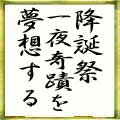 降誕祭
一夜奇蹟を
夢想する